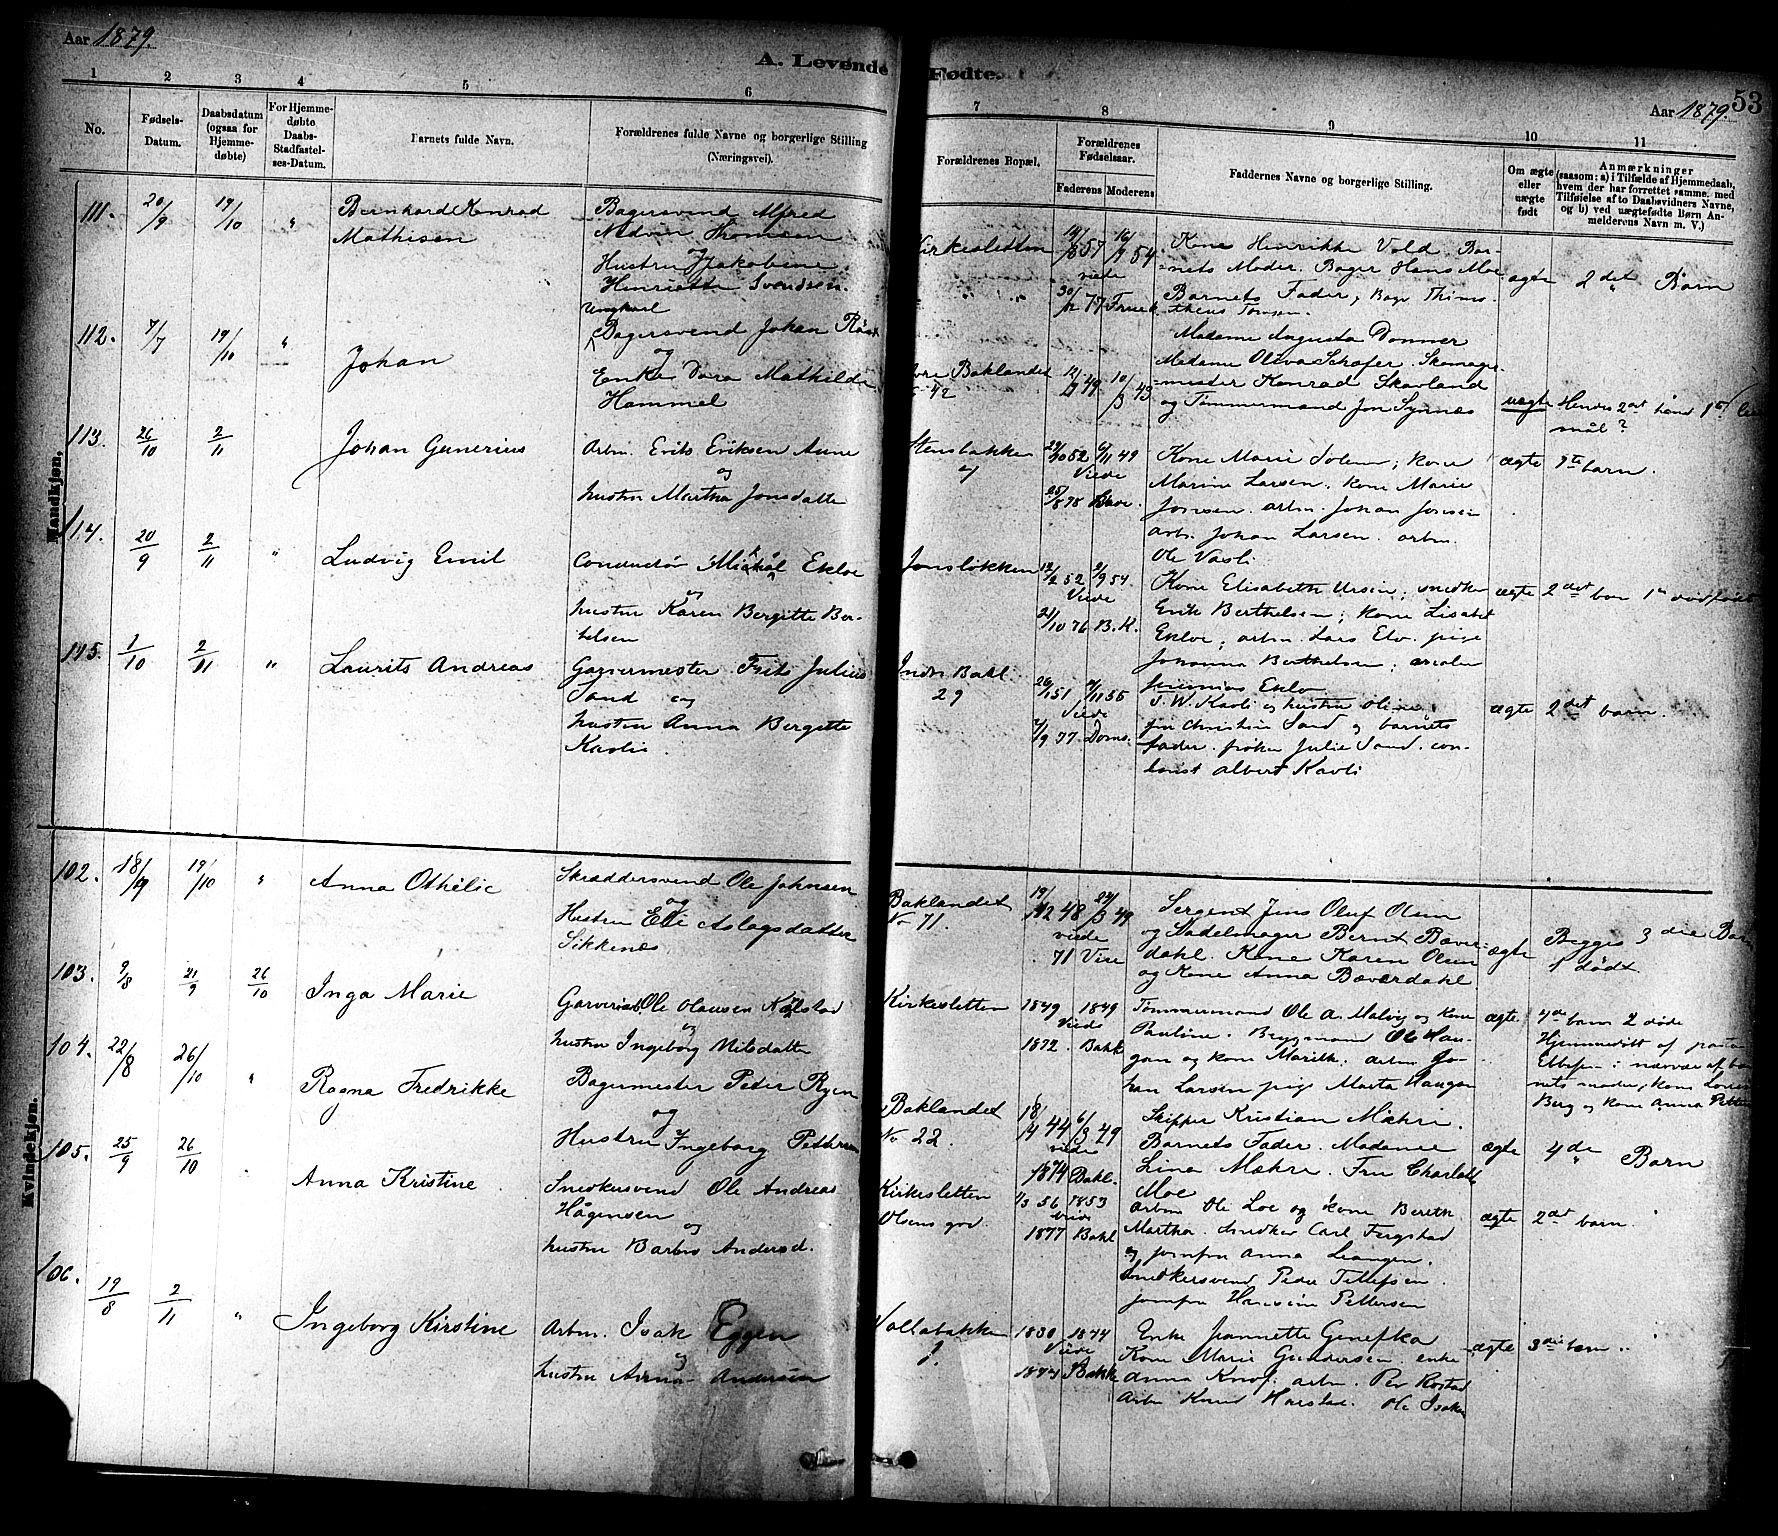 Aar 1879.
A. Levende Fødte.
53
Aar 1879.
1 2 3 4 5 6 7 8 9 10 11
No.
Fødsels-Datum.
Daabsdatum (ogsaa for Hjemmedøbte)
For Hjemmedøbte Daabs-Stadfæstelses-Datum.
Barnets fulde Navn.
Forældrenes fulde Navne og borgerlige Stilling (Næringsvei).
Forældrenes Bopæl.
Forældrenes Fødselsaar.
Faderens Moderens
Faddernes Navne og borgerlige Stilling.
Om ægte eller uægte født
Anmærkninger (saasom: a) i Tilfælde af Hjemmedaab, hvem der har forrettet samme, med Tilføielse af to Daabsvidners Navne, og b) ved uægtefødte Børn Anmelderens Navn m. V.)
Mandkjøn.
111. 20/9 19/10 "
Bernhard Konrad
Mathisen
Bagersvend Alfred
Thomsen
og
Hustru Jakobine
Henriette Svendsen.
Kirkesletten
57 54
viede
30/12 77
Kone Henrikke Vold. Bar-
nets Moder. Bager Hans Moe
Barnets Fader, Bager Thimo-
theus Tomsen.
ægte
2det Barn
112. 7/7 19/10 "
Johan
Ungkarl
Bagersvend Johan
og
Enke Dora Mathilde
Hammel
Baklandet
42
49 10/3 43
Madame Augusta Donner
Madame Oliva Schøfer Skomager-
mester Konrad Skavland
og Tømmermand Jon
uægte
Hendes 2det hans 1ste
mål?
113. 26/10 2/11
Johan Gunerius
Arbm. Erits Eriksen Aune
og
hustru Martha Jonsdatter
Stensbakken
52 6/11 49
Viede
25/8 78 Bakl.
Kone Marie Solem; kone
Marine Larsen; kone Marie
Jonsen. arbm. Johan Jonsen
arb. Johan Larsen. arbm.
Ole Vasli
ægte
1ste barn.
114. 20/9 2/11 "
Ludvig Emil
Conductør Mikal Ekloe
og
hustru Karen Bergitte Ber-
telsen
Jonsløkken
12/2 52 2/9 54.
Viede
21/10 76 B.K.
Kone Elisabeth Ursin; snedker
Erik Berthelsen; kone Lisabet
Ekloe; arbm Lars Elv. pige
Johanna Berthelsen; arbeider
Jeremias Eklo
ægte
2det barn 1ste dødfødt
115. 1/10 2/11 "
Laurits Andreas
Garvermester Frits Julius
Sand og
hustru Anna Bergitte
Kavli.
Indr. Bakl.
29
26/1 51 55
Viede
7/9 77 Doms.
T. W. Kavli og hustru Oline
fru Christine Sand og barnets
fader. frøken Julie Sand. con-
torist Albert Kavli
ægte
2det barn.
Kvindekjøn.
102. 18/9 19/10 "
Anna Othelie
Skræddersvend Ole Johnsen
og
Hustru Eli Aslagsdatter
Sikkenes
Baklandet
No 71.
19/12 48 24/3 49
viede
71
Sergent Jens Oluf Olsen
og Sadelmager Bernt Bæver-
dahl. Kone Karen Olsen
og Kone Anna Bæverdahl
ægte
Begges 3die Barn
1 dødt
103. 9/8 21/9 26/10
Inga Marie
Garveri Ole Olausen Kalstad
og
hustru Ingeborg Nilsdatter
Kirkesletten
1849 1849
Viede
1872 Bakk
Tømmermand Ole A. Malvig og kone
Pauline. Bygmand Ole Hau-
gan og kone Marith. arbm Jo-
han Larsen pige Marta Haugan
ægte.
4de barn 2 døde
Hjemmedøbt af
Ellefsen i nærvær af bar-
nets moder, kone Lovise
Berg og kone Anna Petter
104. 22/8 26/10 "
Ragna Fredrikke
Bagermester Peter Ryen
og
Hustru Ingeborg Pettersen
Baklandet
No 22.
44 6/3 49
viede
1874 Bakl.
Skipper Kristian Mæhre.
Barnets Fader. Madame
Lina Mæhre. Fru Charlotte
Moe
ægte
4de Barn
105. 25/9 26/10
Anna Kristine
Snedkersvend Ole Andreas
Hågensen
og
hustru Barbro Andersd.
Kirkesletten
Olsens gd.
1/3 56 1853
viede
1877 Bakl
arbm Ole Loe og kone Bereth
Martha. Snedker Carl Fergstad
og jomfru Anna Leangen.
Snedkersvend Peder Tellefsen.
jomfru Hansine Pettersen
ægte
2det barn.
106. 19/8 2/11 "
Ingeborg Kirstine
Arbm. Isak Eggen
og
hustru Anna Andersen
Vollabakken
1.
1830 1844
Viede
1874 Bakk
Enke Jeannette Genefka
Kone Marie Gundersen. enke
Anna Knof. arbm. Per Rostad
Arbm Knud Harstad. Ole Isaksen
ægte
3die barn.